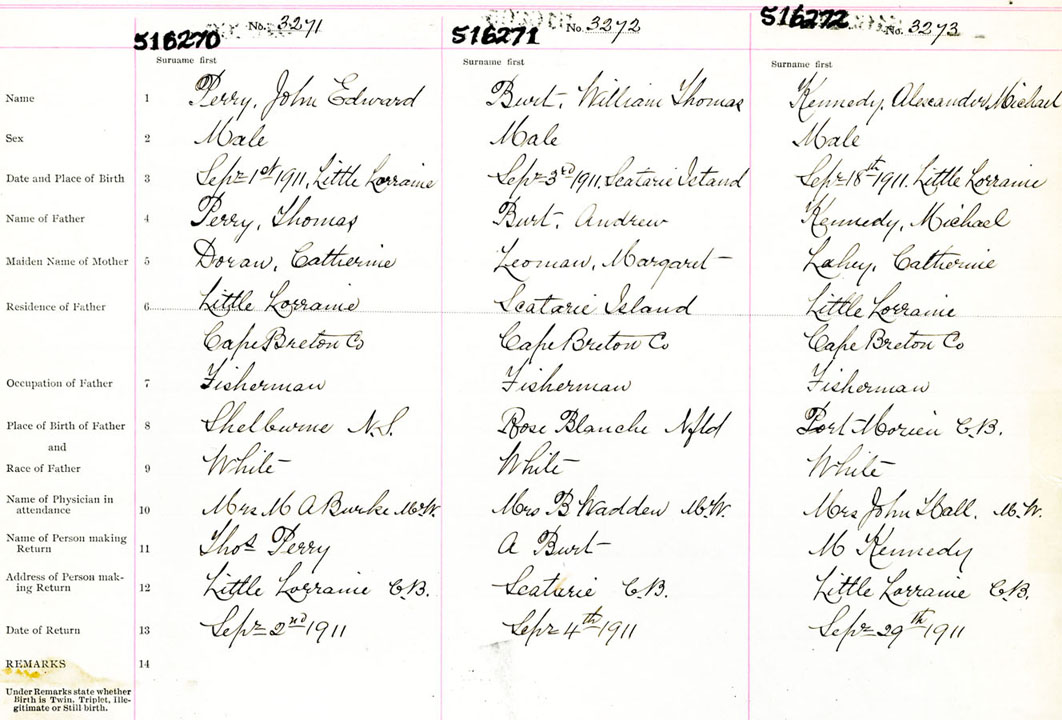 No. 3271 No. 3272 No. 3273
516270 516271 516272
Surname first Surname first Surname first
Name 1 Perry, John Edward Burt, William Thomas Kennedy, Alexander Michael
Sex 2 Male Male Male
Date and Place of Birth 3 Sept 1st 1911, Little Lorraine Sept 3rd 1911, Scatarie Island Sept 18th 1911. Little Lorraine
Name of Father 4 Perry, Thomas Burt, Andrew Kennedy, Michael
Maiden Name of Mother 5 Doran, Catherine Yeoman, Margaret Lahey, Catherine
Residence of Father 6 Little Lorraine Scatarie Island Little Lorraine
Cape Breton Co Cape Breton Co Cape Breton Co
Occupation of Father 7 Fisherman Fisherman Fisherman
Place of Birth of Father 8 Shelburne N.S. Rose Blanche Nfld Port Morien C.B.
and
Race of Father 9 White White White
Name of Physician in
attendance 10 Mrs M A Burke M.W. Mrs B Wadden M.W. Mrs John Hall. M.W.
Name of Person making
Return 11 Thos Perry A Burt M Kennedy
Address of Person mak-
ing Return 12 Little Lorraine C.B. Scatarie C.B. Little Lorraine C.B.
Date of Return 13 Sept 2nd 1911 Sept 4th 1911 Sept 29th 1911
REMARKS 14
Under Remarks state whether
Birth is Twin, Triplet, Ille-
gitimate or Still birth.